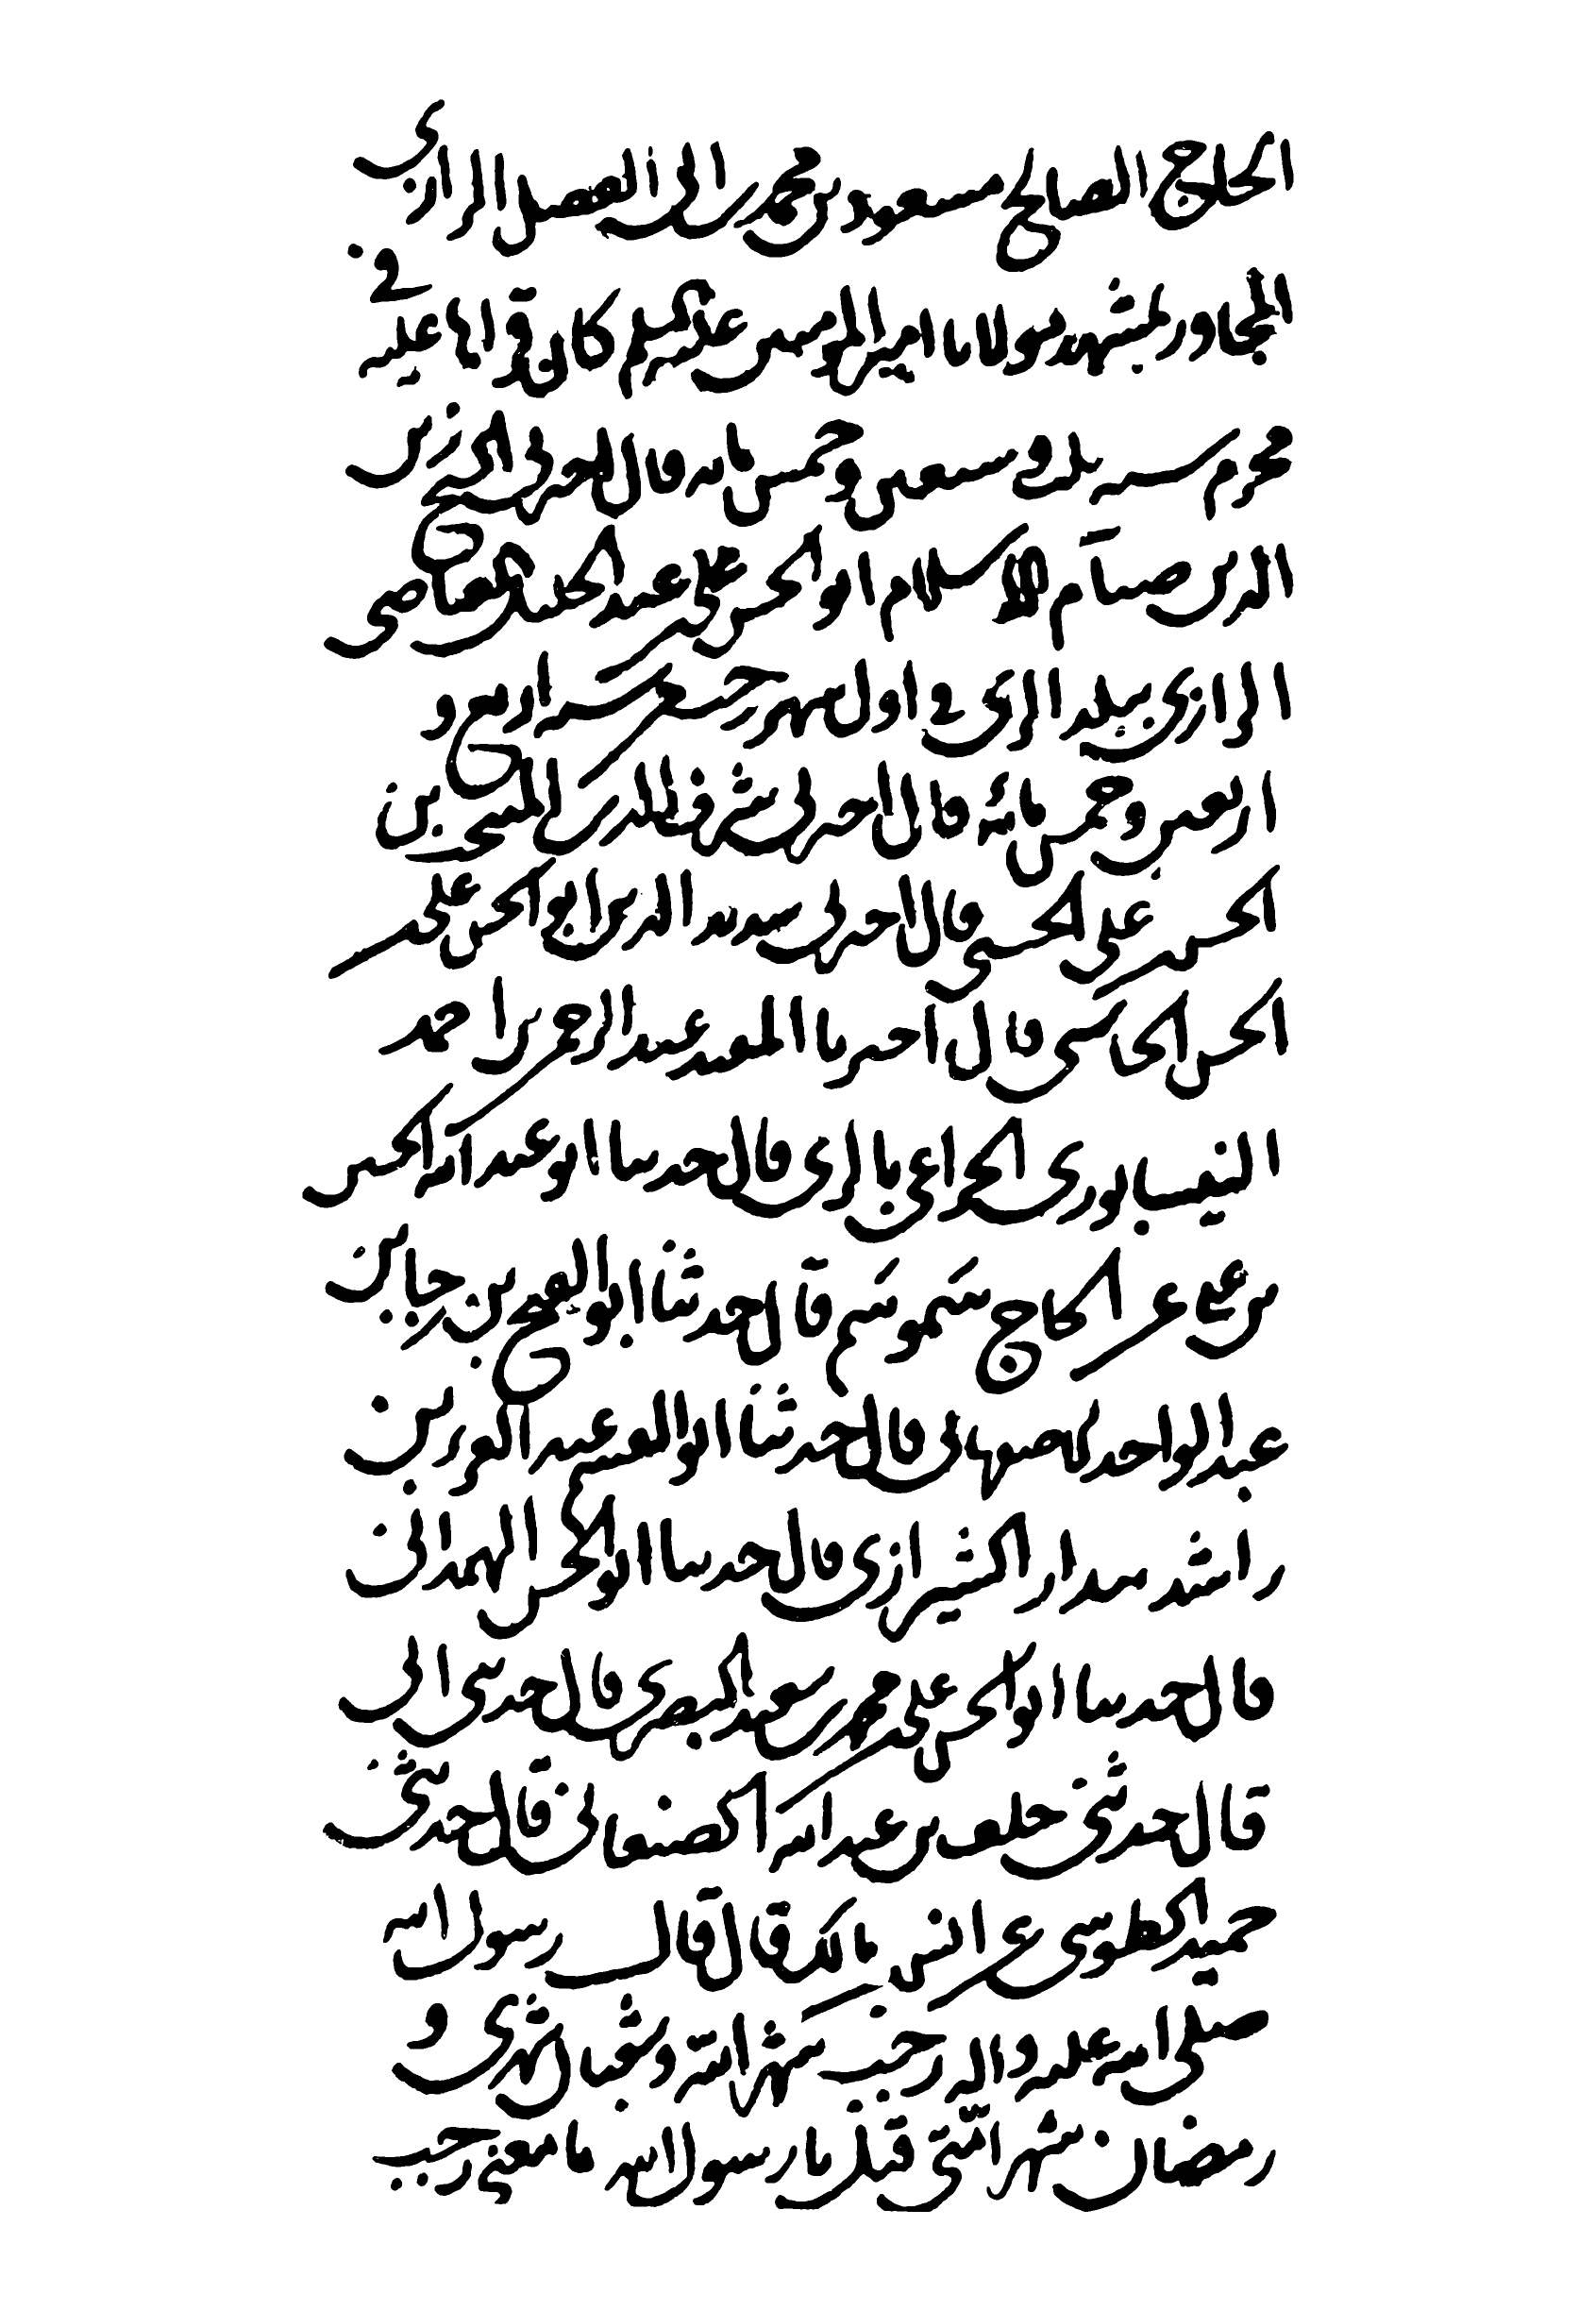 الحاج الصالح مسعود بن محمد بن ابى الفضل الرازى
المجاور بمشهد مولانا امير المؤمنين عليه السلم كان قرايا عليه فى
محرم سنه ثلث وسبعين وخمس مايه قال اخبرنى الشيخ
الدين صمصام الاسلام ابو الحسن على بن عبد الجليل القاضى
الرازى ببلد الرى فى اول شهر رجب سنه اربع و
اربعين وخمس مائه قال اخبرنى شرف الدين المنتجب بن
الحسن بن على الحسنى قال اخبرنى سديد الدين ابو الحسن على بن
الحسن الجاسبى قال اخبرنا المفيد عبد الرحمن بن احمد
النيسابورى الخزاعى بالرى قال حدثنا ابو عبد الله الحسن
بن على بن الحاج قال حدثنا ابو الفتح بن رجا بن
عبد الواحد الاصبهانى قال حدثنا ابو القسم عبد العزيز بن
راشد بن بندار الشيرازى قال حدثنا ابو الحسن الهمدانى
قال حدثنا ابو الحسن على بن محمد بن سعيد البصرى قال حدثنى ابى
قال حدثنى خلف بن عبد الله الصنعانى قال حدثنى
حميد الطوسى عن انس بن مالك قال قال رسول الله
صلى الله عليه واله رجب شهر الله وشعبان شهرى و
رمضان شهر امّتى قيل يا رسول الله ما معنى رجب